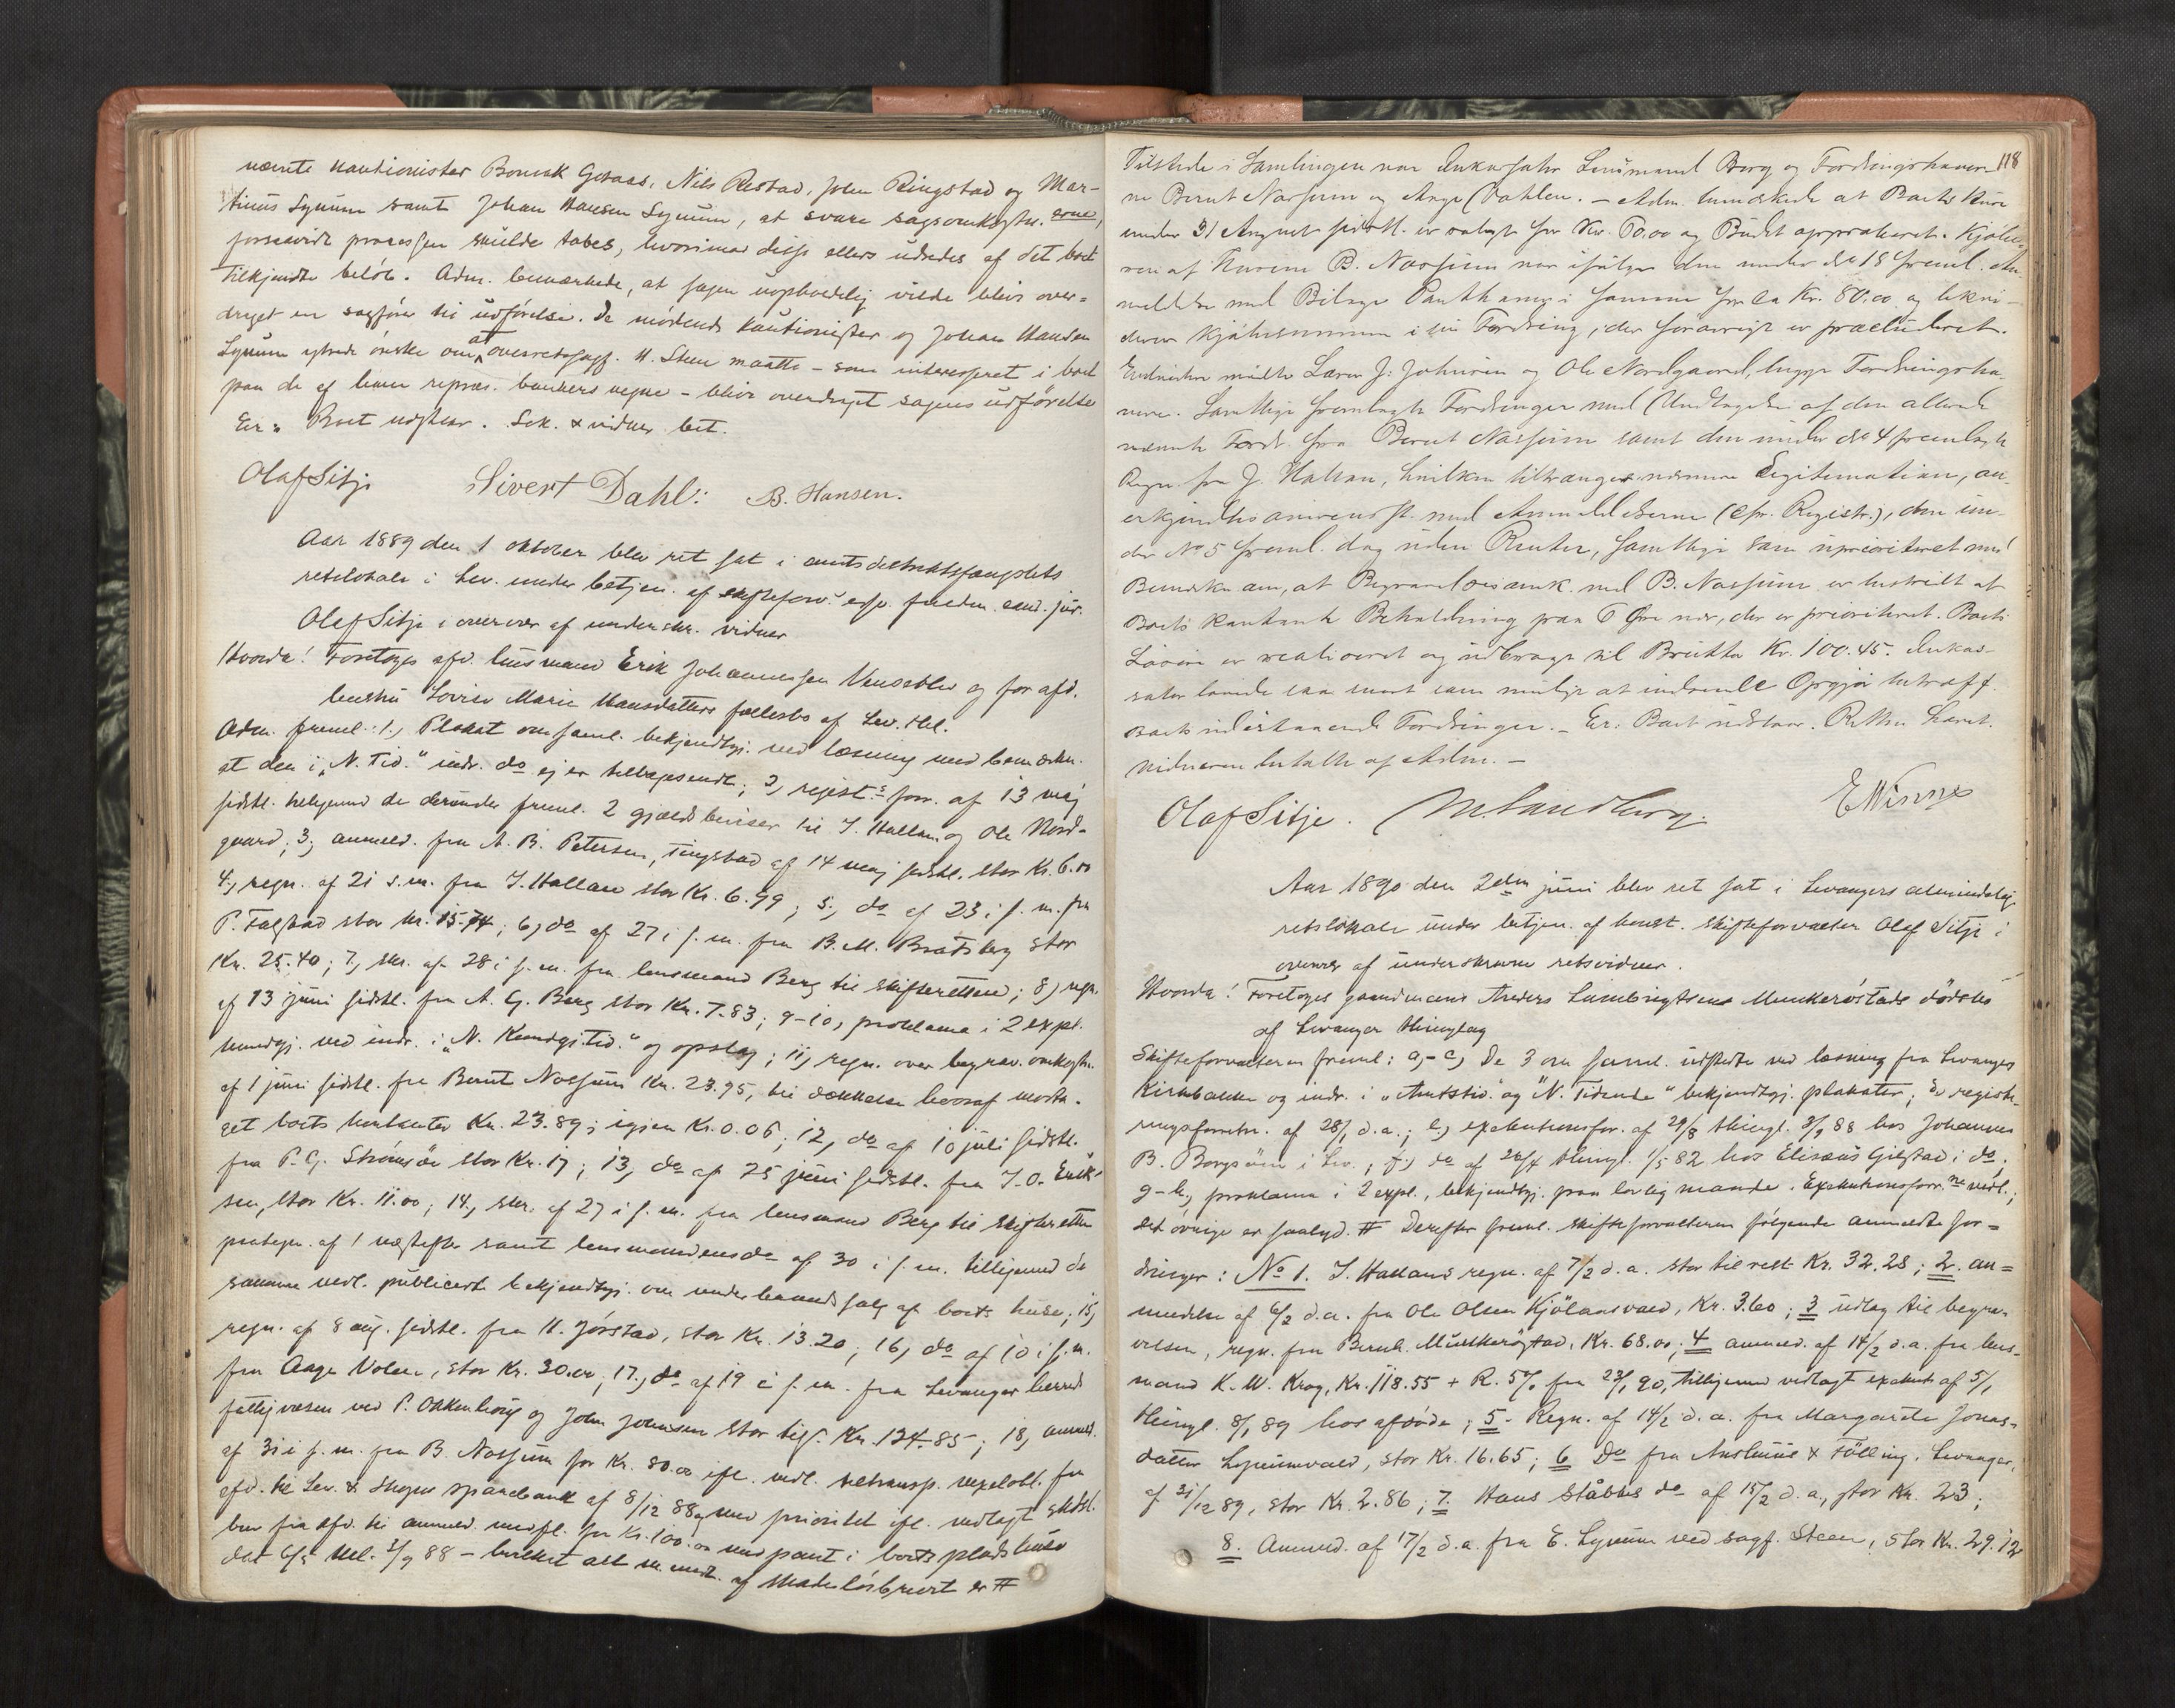 nævnte kautionister Bonsak Gotaas, Nils Restad, John Ringstad og Mar-
tinus Lynum samt Johan Hansen Lynum, at svare sagsomkostn. erne,
forsaavidt processen skulde tabes, hvorimod disse ellers udredes af det boet
tilkjendte beløb. Adm. bemærkede, at sagen uopholdelig vilde blive over-
draget en sagfører til udførelse. De mødende kautionister og Johan Hansen
Lynum ytrede ønske om at overretssagf. H. Steen maatte – som interesseret i boet
paa de af ham repræs. bankers vegne – blive overdraget sagens udførelse
Er: Boet udstaar. Sek. & vidner bet.
Olaf Sitje Sivert Dahl: B. Hansen.
Aar 1889 den 1 oktober blev ret sat i amtsdistriktsfængslets
retslokale i Lev. under betjen. af skifteforv. edsv. fuldm. cand. jur.
Olaf Sitje i overvær af underskr. vidner
Hvorda! Foretoges afd. husmand Erik Johannessen Venseblev og før afd.
hustru Lovise Marie Hansdatters fællesbo af Lev. thl.
Adm. freml.: 1, Plakat om saml. bekjendtgj. ved læsning med bemærkn.
at den i „N. Tid." indr. do ej er tilbagesendt; 2, regist.s forr. af 13 maj
sidstl. tilligemed de derunder freml. 2 gjældsbeviser til J. Hallan og Ole Nord-
gaard; 3, anmeld. fra A. B. Petersen, Ringstad af 14 maj sidstl. stor Kr. 6.00
4, regn. af 21 s.m. fra J. Hallan stor Kr. 6.99; 5, do af 23 i s.m. fra
P. Falstad stor Kr. 15.74; 6, do af 27 i s.m. fra B. M. Bratsberg stor
Kr. 25.40; 7, skr. af 28 i s.m. fra lensmand Berg til skifteretten; 8, regn.
af 13 juni sidstl. fra A. G. Berg stor Kr. 7.83; 9-10, proklama i 2 expl.
kundgj. ved indr. i „N. Kundgj.tid." og opslag; 11, regn. over begrav. omkostn.
af 1 juni sidstl. fra Bernt Nossum Kr. 23.95, til dækkelse hvoraf modta-
get boets kontanter Kr. 23.89; igjen Kr. 0.06; 12, do af 10 juli sidstl.
fra P. G. Strömsöe stor Kr. 17; 13, do af 25 juni sidstl. fra J. O. Erik-
sen, stor Kr. 11.00; 14, skr. af 27 i s.m. fra lensmand Berg til skifteretten
paategn. af 1 næstefter samt lensmandens do af 30 i s.m. tilligemed de
samme vedl. publicerte bekjendtgj. om underhaandssalg af boets huse; 15,
regn. af 8 aug. sidstl. fra H. Jörstad, stor Kr. 13.20; 16, do af 10 i s.m.
fra Aage Volen, stor Kr. 30.00; 17, do af 19 i s.m. fra Levanger herreds
fattigvæsen ved P. Okkenhaug og John Johnsen stor tils. Kr. 134.85; 18, anmeld.
af 31 i s.m. fra B. Nossum for Kr. 80.00 ifl. vedl. retransp. vexelobl. fra
afd. til Lev. & Skogns sparebank af 8/12 88 og med prioritet ifl. vedlagt skadsl.
brev fra afd. til anmeld. for Kr. 100.00 med pant i boets pladshuse
dat 6/5 thl. 3/9 88 – hvilket alt m. undt. af skadesløsbrevet er #
118
Tilstede i Samlingen var Inkassator Lensmand Berg og Fordringshaver-
ne Bernt Nossum og Aage Vahlen. – Adm. bemærkede at Boets Huse
under 31 August sidstl. er solgte for Kr. 80.00 og Budet approberet. Kjøbe-
ren af Husene B. Nossum har ifølge den under No 18 freml. An-
meldelse med Bilage Panthaver i samme for ca Kr. 80.00 og lekvi-
derer Kjøbesummen i sin Fordring, der forøvrigt er præcluderet.
Endvidere mødte Lærer J. Johnsen og Ole Nordgaard, begge Fordringsha-
vere. Samtlige fremlagte Fordringer med Undtagelse af den allerede
nævnte Fordr. fra Bernt Nossum samt den under No 4 fremlagte
Regn. fra J. Hallan, hvilken tiltrænger nærmere Legitimation, an-
erkjendtes overensst. med Anmeldelserne (cfr. Registr.), den un-
der No 5 freml. dog uden Renter, samtlige som uprioriteret med
Bemærkn. om, at Begravelsesomk. med B. Nossum er bestridt af
Boets kontante Beholdning paa 6 Øre nær, der er prioriteret. Boets
Løsøre er realiseret og udbragt til Brutto Kr. 100.45. Inkas-
sator lovede saa snart som muligt at indsende Opgjør betræff.
Boets udestaaende Fordringer. – Er: Boet udstaar. Retten hævet.
Vidnerne betalte af Adm. –
Olaf Sitje. M. Sandberg. E Winne
Aar 1890 den 2den juni blev ret sat i Levangers almindelige
retslokale under betjen. af konst. skifteforvalter Olaf Sitje i
overvær af underskrevne retsvidner.
Hvorda! Foretoges gaardmand Anders Lambrigtsens Munkerøstads dødsbo
af Levanger thinglag
Skifteforvalteren freml: a-c, De 3 om saml. udstedte ved læsning fra Levanger
Kirkebakke og indr. i „Amtstid." og „N. Tidende" bekjendtgj. plakater; d, registe-
ringsforretn. af 28/1 d.a.; e, exekutionsfor. af 29/8 thingl. 3/9 88 hos Johannes
B. Borgsøen i Lev.; f, do af 26/4 thingl. 1/5 82 hos Elisæus Gilstad i do;
g-h, proklama i 2 expl., bekjendtgj. paa lovlig maade. Exekutionsforr.ne vedl.;
det øvrige er saalyd. # Derefter freml. skifteforvalteren følgende anmeldte for-
dringer: No 1. J. Hallans regn. af 7/2 d.a. stor til rest Kr. 32.28; 2. an-
meldelse af 6/2 d.a. fra Ole Olsen Kjölaasvald, Kr. 3.60; 3 udlæg til begra-
velsen, regn. fra Bernh. Munkerøstad, Kr. 68.00; 4 anmeld. af 14/2 d.a. fra lens-
mand K. W. Krog, Kr. 118.55 + R. 5% fra 23/1 90, tilligemed vedlagt exekuts af 5/1
thingl. 8/1 89 hos afdøde; 5. Regn. af 14/2 d.a. fra Margarete Jonas-
datter Lynumvald, stor Kr. 16.65; 6 Do fra Anshuus & Fölling, Levanger,
af 31/12 89, stor Kr. 2.86; 7. Hans Ståbbis do af 15/2 d.a., stor Kr. 23;
8. Anmeld. af 17/2 d.a. fra E. Lynum ved sagf. Steen, stor Kr. 29.12